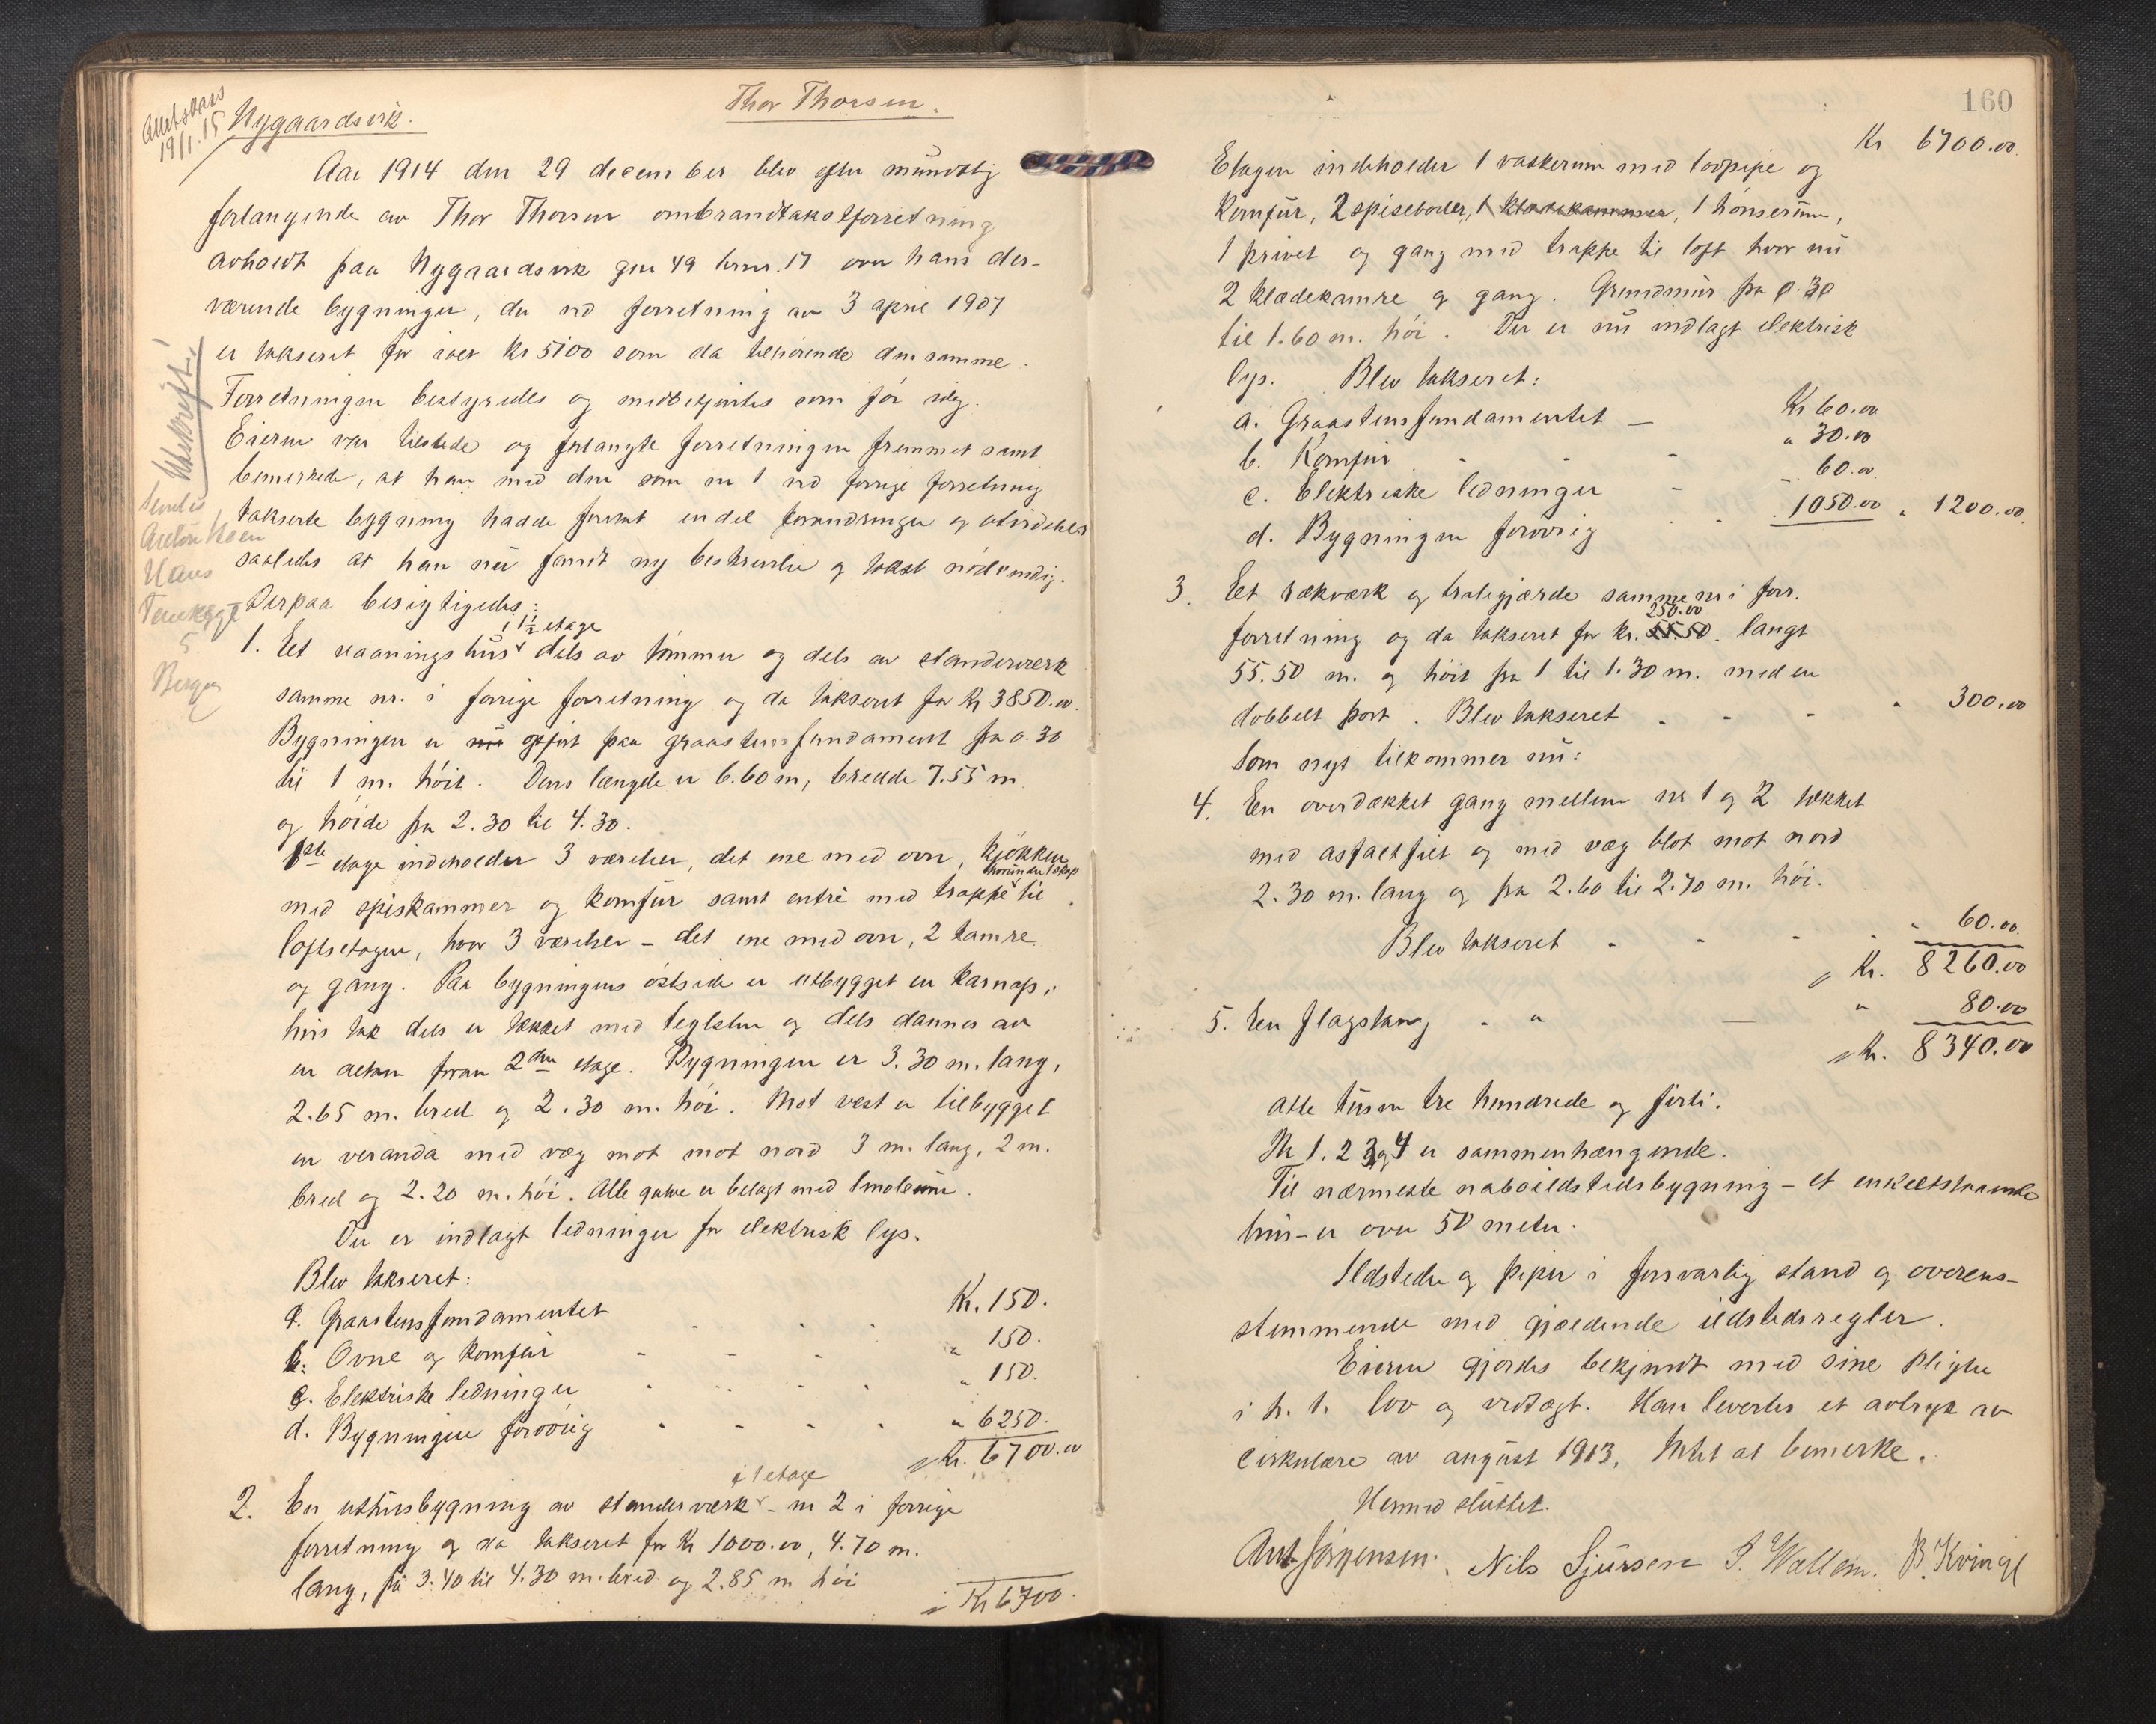 Nygaardsvik.
Thor Thorsen.
19/1.15
Aar 1914 den 29 december blev efter mundtlig
forlangende av Thor Thorsen ombrandtakstforretning
avholdt paa Nygaardsvik gnr 49 brnr. 17 over hans der-
værende bygninger, der ved forretning av 3 april 1907
er takseret for ialt Kr 5100 som da tilhørende den samme.
Forretningen bestyredes og medbetjentes som før idag.
Eieren var tilstede og forlangte forretningen fremmet samt
bemerkede, at han med den som nr 1 ved forrige forretning
takserte bygning hadde foretat endel forandringer og utvidelser
saaledes at han nu fandt ny beskrivelse og takst nødvendig.
Derpaa besigtigedes:
Utskrift!
sendes
Anton
Hans
5.
Bergen
i 1½ etage
1. Et vaaningshus dels av tømmer og dels av standerværk
samme nr. i forrige forretning og da takseret for Kr 3850.00.
Bygningen er nu opført paa graastensfundament fra 0.30
til 1 m. høit. Dens længde er 6.60 m, bredde 7.55 m.
og høide fra 2.30 til 4.30.
1ste etage indeholder 3 værelser, det ene med ovn, kjøkken
hvorunder 1 skap
med spiskammer og komfur samt entré med trappe til
loftsetagen, hvor 3 værelser - det ene med ovn, 2 kamre
og gang. Paa bygningens østside er utbygget en karnap,
hvis tak dels er tækket med teglsten og dels dannes av
en altan foran 2den etage. Bygningen er 3.30 m. lang,
2.65 m. bred og 2.30 m. høi. Mot vest er tilbygget
en veranda med væg mot mot nord 3 m. lang, 2 m.
bred og 2.20 m. høi. Alle gulve er belagt med linoleum.
Der er indlagt ledninger for elektrisk lys.
Blev takseret:
a. Graastensfundamentet Kr. 150.
b. Ovne og komfur " 150.
c. Elektriske ledninger " 150.
d. Bygningen forøvrig " 6250.
Kr. 6700.00
i 1 etage
2. En uthusbygning av standerværk - nr 2 i forrige
forretning og da takseret for Kr 1000.00, 4.70 m.
lang, fra 3.40 til 4.30 m. bred og 2.85 m høi
Kr 6700.
160
Kr 6700.00.
Etagen indeholder 1 vaskerum med tovpipe og
Komfur, 2 spiseboder, 1 klædekammer, 1 hønserum,
1 privet og gang med trappe til loft hvor nu
2 klædekamre og gang. Grundmur fra 0.30
til 1.60 m. høi. Der er nu indlagt elektrisk
lys. Blev takseret:
a. Graastensfundamentet — Kr 60.00
b. Komfur " 30.00
c. Elektriske ledninger 60.00
d. Bygningen forøvrig 1050.00 " 1200.00.
3. Et rækværk og stakitgjærde samme nr i forr.
250.00
forretning og da takseret for kr. 55.50. langt
55.50 m. og høit fra 1 til 1.30 m. med en
dobbelt port. Blev takseret " 300.00
Som nyt tilkommer nu:
4. En overdækket gang mellem nr 1 og 2 tækket
med asfaltfilt og med væg blot mot nord
2.30 m. lang og fra 2.60 til 2.70 m. høi.
Blev takseret " 60.00.
Kr. 8260.00
5. En flagstang " 80.00
Kr. 8340.00
Otte tusen tre hundrede og førti.
Nr 1. 2 3 og 4 er sammenhængende.
Til nærmeste naboildstedsbygning - et enkeltstaaende
hus - er over 50 meter.
Ildsteder og piper i forsvarlig stand og overens-
stemmende med gjældende ildstedsregler.
Eieren gjordes bekjendt med sine pligter
i h. t. lov og vedtægt. Han levertes et avtryk av
cirkulære av august 1913. Intet at bemerke.
Hermed sluttet.
Ant Jørgensen. Nils Sjursen J. Wallem. B. Kvinge